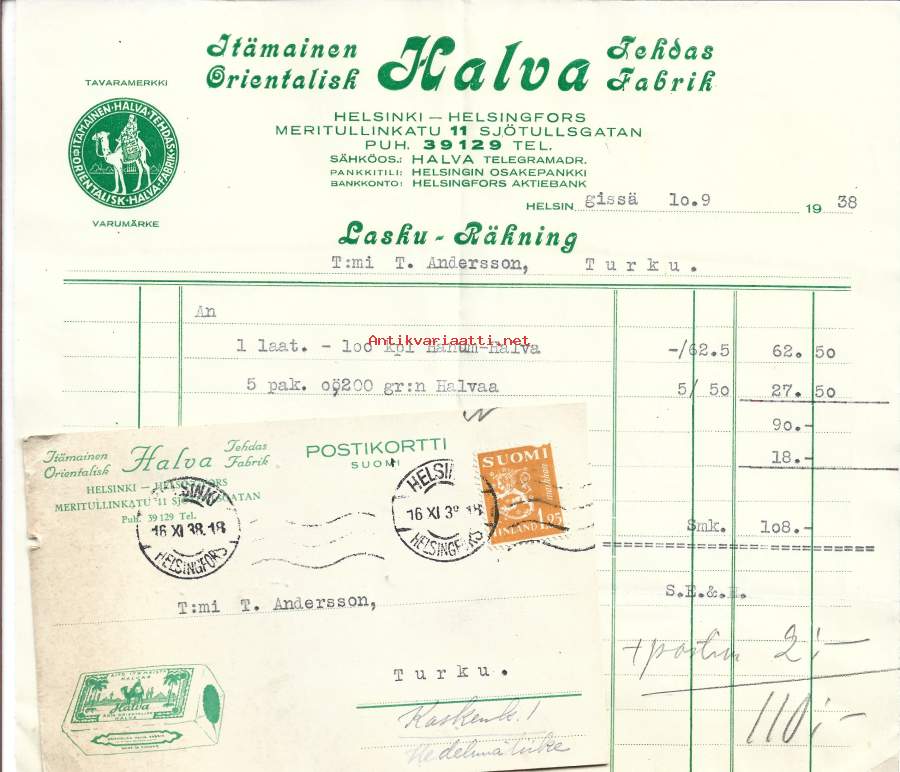 Itämainen Halva Tehdas
Orientalisk Fabrik
TAVARAMERKKI
ITÄMAINEN·HALVA·TEHDAS
ORIENTALISK·HALVA·FABRIK
VARUMÄRKE
HELSINKI — HELSINGFORS
MERITULLINKATU 11 SJÖTULLSGATAN
PUH. 39129 TEL.
SÄHKÖOS.: HALVA TELEGRAMADR.
PANKKITILI: HELSINGIN OSAKEPANKKI
BANKKONTO: HELSINGFORS AKTIEBANK
HELSIN gissä 1o.9 1938
Lasku - Räkning
T:mi T. Andersson, Turku.
An
Antikvariaatti.net
1 laat. - 1oo kpl Hanum-Halva -/62.5 62.50
5 pak. oö200 gr:n Halvaa 5/50 27.50
90.-
18.-
Smk. 1o8.-
S.E.&.
+ postia 2:-
110:-
Itämainen Halva Tehdas
Orientalisk Fabrik
HELSINKI — HELSINGFORS
MERITULLINKATU 11 SJÖTULLSGATAN
Puh. 39129 Tel.
POSTIKORTTI
SUOMI
HELSINKI
16 XI 38.18
HELSINGFORS
HELSINKI
16 XI 38.18
HELSINGFORS
SUOMI
markkaa
FINLAND 1.25
T:mi T. Andersson,
Turku.
Kaskenk. 1
Hedelmäliike
AITO ITÄMAISTA
HALVAA
Halva
HALVA